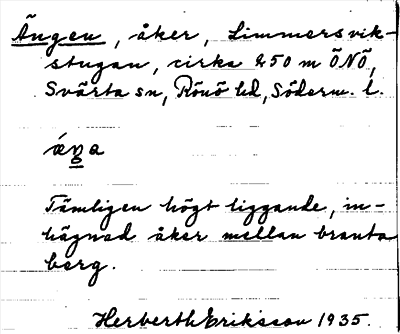 Ängen, åker, Limmersvik-
stugan, cirka 250 m ÖNÖ,
Svärta sn, Rönö hd, Söderm. l.
Tämligen högt liggande, in-
hägnad åker mellan branta
berg.
Herberth Eriksson 1935.